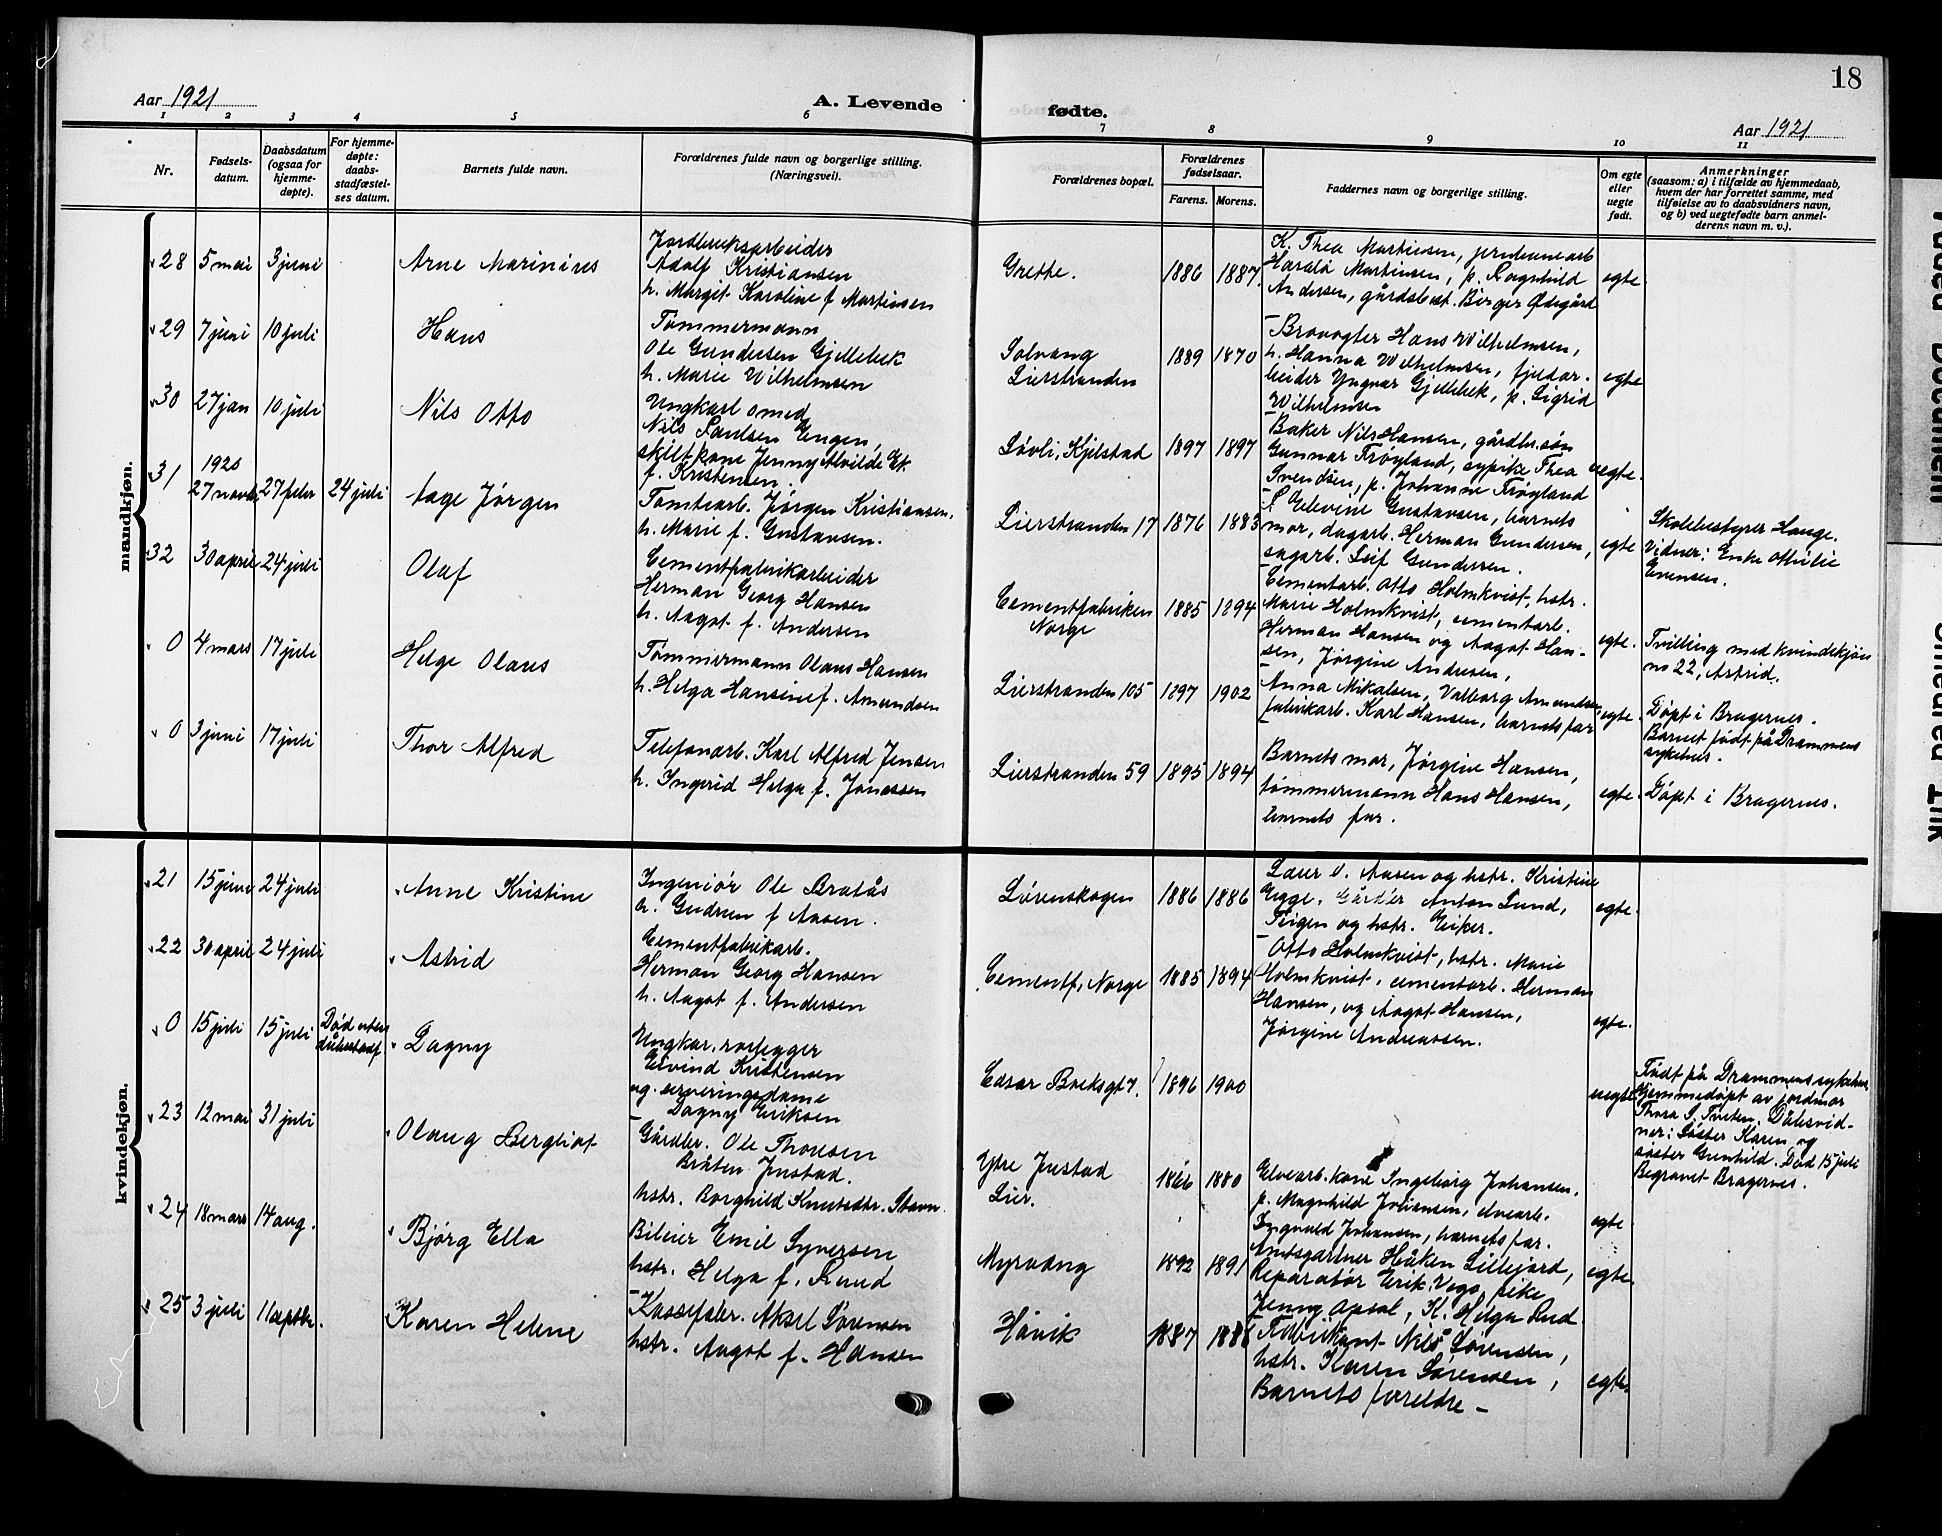 18
Aar 1921
A. Levende fødte.
Aar 1921
1 2 3 4 5 6 7 8 9 10 11
Nr.
Fødsels-
datum.
Daabsdatum
(ogsaa for
hjemme-
døpte).
For hjemme-
døpte:
daabs-
stadfæstel-
ses datum.
Barnets fulde navn.
Forældrenes fulde navn og borgerlige stilling.
(Næringsvei).
Forældrenes bopæl.
Forældrenes
fødselsaar.
Farens. Morens.
Faddernes navn og borgerlige stilling.
Om egte
eller
uegte
født.
Anmerkninger
(saasom: a) i tilfælde av hjemmedaab,
hvem der har forrettet samme, med
tilføielse av to daabsvidners navn,
og b) ved uegtefødte barn anmel-
derens navn m. v.).
mandkjøn.
28 5 mai 3 juni
Arne Marinius
Jordbruksarbeider
Adolf Kristiansen
h. Margit Karoline f. Martinsen
Grette.
1886 1887
K. Thea Martinsen, jernbanearb
Harald Martinsen, p. Ragnhild
Andersen, gårdsbest. Birger Ødegård
egte
29 7 juni 10 juli
Hans
Tømmermann
Ole Gundersen Gjellebek
h. Marie Wilhelmsen
Solvang
Lierstranden
1889 1870
Brovogter Hans Wilhelmsen,
h. Hanna Wilhelmsen,
beider Yngvar Gjellebek, p. Sigrid
Wilhelmsen
egte
30 27 jan 10 juli
Nils Otto
Ungkarl smed
Nils Paulsen Engen,
skilt kone Jenny Alvilde Ek
f. Kristensen.
Løvli, Kjelstad
1897 1897
Baker Nils Hansen, gårdbr. søn
Gunnar Frøyland, sypike Thea
Svendsen, p. Johanne Frøyland
uegte.
31 1920
27 novbr 27 febr 24 juli
Aage Jørgen
Tomtearb. Jørgen Kristiansen,
h. Marie f. Gustavsen.
Lierstranden 17
1876 1883
Elevine Gustavsen, barnets
mor, dagarb. Herman Gundersen,
sagarb. Leif Gundersen.
egte
Skolebestyrer Hauge.
Vidner: Enke Othilie
Evensen.
32 30 april 24 juli
Olaf
Cementfabrikarbeider
Herman Georg Hansen
h. Aagot f. Andersen
Cementfabriken
Norge
1885 1894
Cementarb. Otto Holmkvist, hstr.
Marie Holmkvist, cementarb.
Herman Hansen og Aagot Han-
sen, Jørgine Andresen,
egte.
Tvilling med kvindekjøn
no 22, Astrid.
0 4 mars 17 juli
Helge Olaus
Tømmermann Olaus Hansen
h. Helga Hansine f. Amundsen
Lierstranden 105
1897 1902
Anna Mikalsen, Valborg Amundsen,
fabrikarb. Karl Hansen, barnets far
egte.
Døpt i Bragernes.
Barnet født på Drammens
sykehus.
0 3 juni 17 juli
Thor Alfred
Telefonarb. Karl Alfred Jensen
h. Ingrid Helga f. Jonassen
Lierstranden 59
1895 1894
Barnets mor, Jørgine Hansen,
tømmermann Hans Hansen,
barnets far.
egte.
Døpt i Bragernes.
kvindekjøn.
21 15 juni 24 juli
Anne Kristine
Ingeniør Ole Bratås
h. Gudrun f Aasen.
Lørenskogen
1886 1886
Lærer O. Aasen og hstr. Kristine
Egge, Gårdbr Anton Lund,
Teigen og hstr. Eiker.
egte.
22 30 april 24 juli
Astrid
Cementfabrikarb.
Herman Georg Hansen
h. Aagot f. Andersen
Cementf. Norge
1885 1894
Otto Holmkvist, hstr. Marie
Holmkvist, cementarb. Herman
Hansen, og Aagot Hansen,
Jørgine Andreassen.
egte.
0 15 juli 15 juli
Død uten
Dagny
Ungkar. rørlegger
Eivind Kristensen
og serveringsdame
Dagny Eriksen
Edvar Boeksgt 7.
1896 1900
uegte
Født på Drammens sykehus,
Hjemmedøpt av jordmor
Thora S. Tveten. Dåbsvid-
ner: Søster Karen og
søster Gunhild. Død 15 juli
Begravet Bragernes.
23 12 mai 31 juli
Olaug Bergliot
Gårdbr. Ole Thoresen
Bråten Justad.
hstr. Borghild Knutsdtr. Stavn
Ytre Justad
Lier.
1866 1880
Elvearb. kone Ingeborg Johansen,
p. Magnhild Johansen, elvearb.
Ingvald Johansen, barnets far.
egte.
24 18 mars 14 aug.
Bjørg Ella
Bileier Emil Syversen
hstr. Helga f. Ruud
Myrvang
1892 1891
Amtsgartner Håken Lillejord,
Reparatør Erik Vego, pike
Jenny Opsal, K. Helga Lud
egte
25 3 juli 11 septbr.
Karen Helene
Kassefabr. Aksel Sørensen
hstr. Aagot f. Hansen
Høvik
1887 1886
Fabrikant Nils Sørensen,
hstr. Karen Sørensen,
Barnets foreldre –
egte